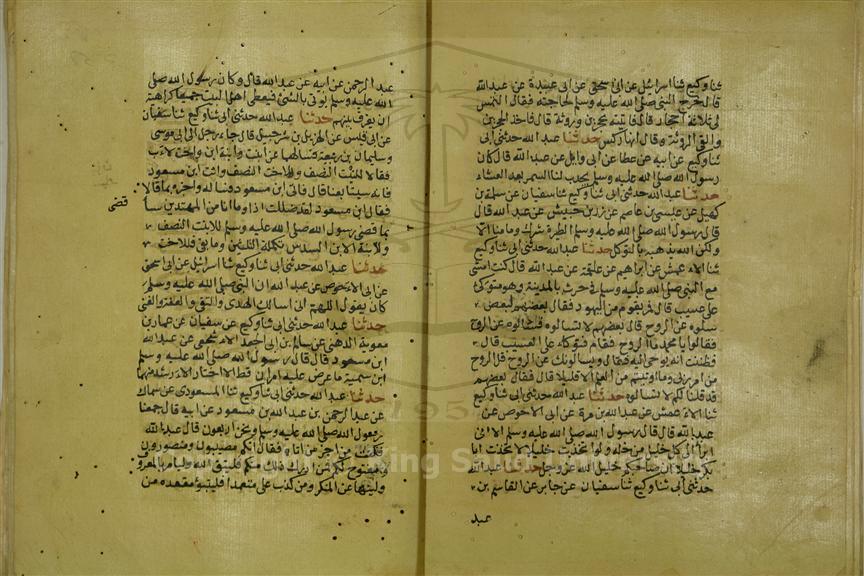 ثنا وكيع ثنا اسرائيل عن ابى اسحق عن ابى عبيدة عن عبدالله
قال خرج النبى صلى الله عليه وسلم لحاجته فقال التمس
لى ثلاثة احجار قال فاتيته بحجرين وروثة قال فاخذ الحجرين
والقى الروثة وقال انها ركس حدثنا عبد الله حدثنى ابى
ثنا وكيع عن ابيه عن عطا عن ابى وايل عن عبدالله قال كان
رسول الله صلى الله عليه وسلم يجدب لنا السمر بعد العشاء
حدثنا عبدالله حدثنى ابى ثنا وكيع ثنا سفيان عن سلمة بن
كهيل عن عيسى بن عاصم عن زر بن حبيش عن عبد الله قال
قال رسول الله صلى الله عليه وسلم الطيرة شرك وما منا الا
ولكن الله يذهبه بالتوكل حدثنا عبدالله حدثنى ابى ثنا وكيع
ثنا الاعمش عن ابراهيم عن علقمة عن عبدالله قال كنت امشى
مع النبى صلى الله عليه وسلم فى حرث بالمدينة وهو متوكئ
على عسيب قال فمر بقوم من اليهود فقال بعضهم لبعض
سلوه عن الروح قال بعضهم لا تسالوه فسالوه عن الروح
فقالوا يا محمد ما الروح فقام فتوكا على العسيب قال
فظننت انه يوحى اليه فقال ويسالونك عن الروح قل الروح
من امر ربى وما اوتيتم من العلم الا قليلا قال فقال بعضهم
قد قلنا لكم لا تسالوه حدثنا عبد الله حدثنى ابى ثنا وكيع
ثنا الاعمش عن عبدالله بن مرة عن ابى الاحوص عن
عبد الله قال قال رسول الله صلى الله عليه وسلم الا انى
ابرا الى كل خليل من خله ولو اتخذت خليلا لاتخذت ابا
بكر خليلا ان صاحبكم خليل الله عز وجل حدثنا عبدالله
حدثنى ابى ثنا وكيع ثنا سفيان عن جابر عن القاسم بن
عبد
عبد الرحمن عن ابيه عن عبد الله قال وكان رسول الله صلى
الله عليه وسلم يوتى بالسبى فيعطى اهل البيت جميعا كراهية
ان يفرق بينهم حدثنا عبدالله حدثنى ابى ثنا وكيع ثنا سفيان
عن ابى قيس عن الهزيل بن شرحبيل قال جاء رجل الى ابى موسى
وسلمان بن ربيعة فسالهما عن ابنت وابنة ابن واخت لاب
فقالا للبنت النصف وللاخت النصف وات ابن مسعود
فانه سيتابعنا قال فاتى ابن مسعود فساله واخبره بما قالا
فقال ابن مسعود لقد ضللت اذا وما انا من المهتدين سا
قضى
بما قضى رسول الله صلى الله عليه وسلم للابنت النصف
ولابنة الابن السدس تكملة الثلثين وما بقى فللاخت
حدثنا عبدالله حدثنى ابى ثنا وكيع ثنا اسرائيل عن ابى اسحق
عن ابى الاحوص عن عبدالله ان النبى صلى الله عليه وسلم
كان يقول اللهم انى اسالك الهدى والتقى والعفة والغنى
حدثنا عبدالله حدثنى ابى ثنا وكيع عن سفيان عن عمار بن
معوية الدهنى عن سالم بن ابى الجعد الاشجعى عن عبد الله
ابن مسعود قال قال رسول الله صلى الله عليه وسلم
ابن سمية ما عرض عليه امران قط الا اختار الارشد منهما
حدثنا عبدالله حدثنى ابى ثنا وكيع ثنا المسعودى عن سماك
عن عبد الرحمن بن عبدالله بن مسعود عن ابيه قال جمعنا
رسول الله صلى الله عليه وسلم ونحن اربعون قال عبدالله
فكنت من اخر من اتاه فقال انكم مصيبون ومنصورون
ومفتوح لكم فمن ادرك ذلك منكم فليتق الله وليامر بالمعروف
ولينها عن المنكر ومن كذب على متعمدا فليتبوء مقعده من